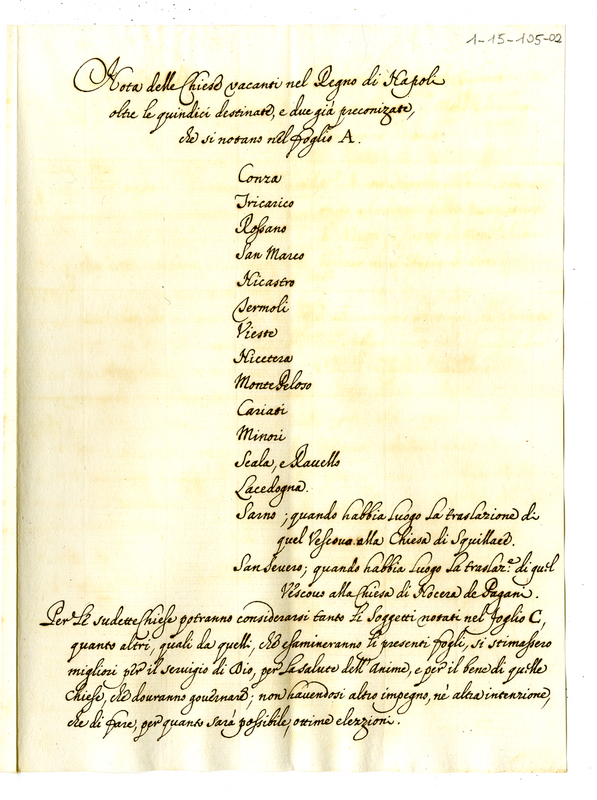 1-15-105-02
Nota delle Chiese vacanti nel Regno di Napoli
oltre le quindici destinate, e due già preconizate,
che si notano nel foglio A.
Conza
Tricarico
Rossano
San Marco
Nicastro
Termoli
Vieste
Nicotera
Monte Peloso
Cariati
Minori
Scala, e Ravello
Lacedogna.
Sarno; quando habbia luogo la traslazione di
quel Vescovo alla Chiesa di Squillace.
San Severo; quando habbia luogo la traslaz.e di quel
Vescovo alla Chiesa di Nocera de Pagani.
Per le sudette Chiese potranno considerarsi tanto li Soggetti notati nel foglio C,
quanto altri, quali da quelli, che esamineranno li presenti fogli, si stimassero
migliori per il servigio di Dio, per la salute dell'Anime, e per il bene di quelle
Chiese, che dovranno governare; non havendosi altro impegno, nè altra intenzione,
che di fare, per quanto sarà possibile, ottime elezzioni.